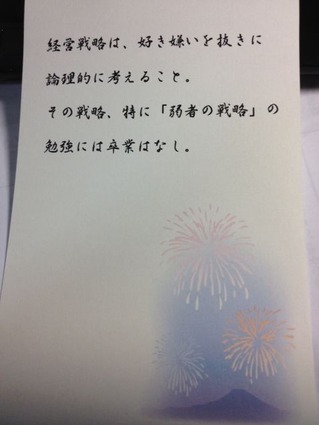 経営戦略は、好き嫌いを抜きに
論理的に考えること。
その戦略、特に「弱者の戦略」の
勉強には卒業はなし。